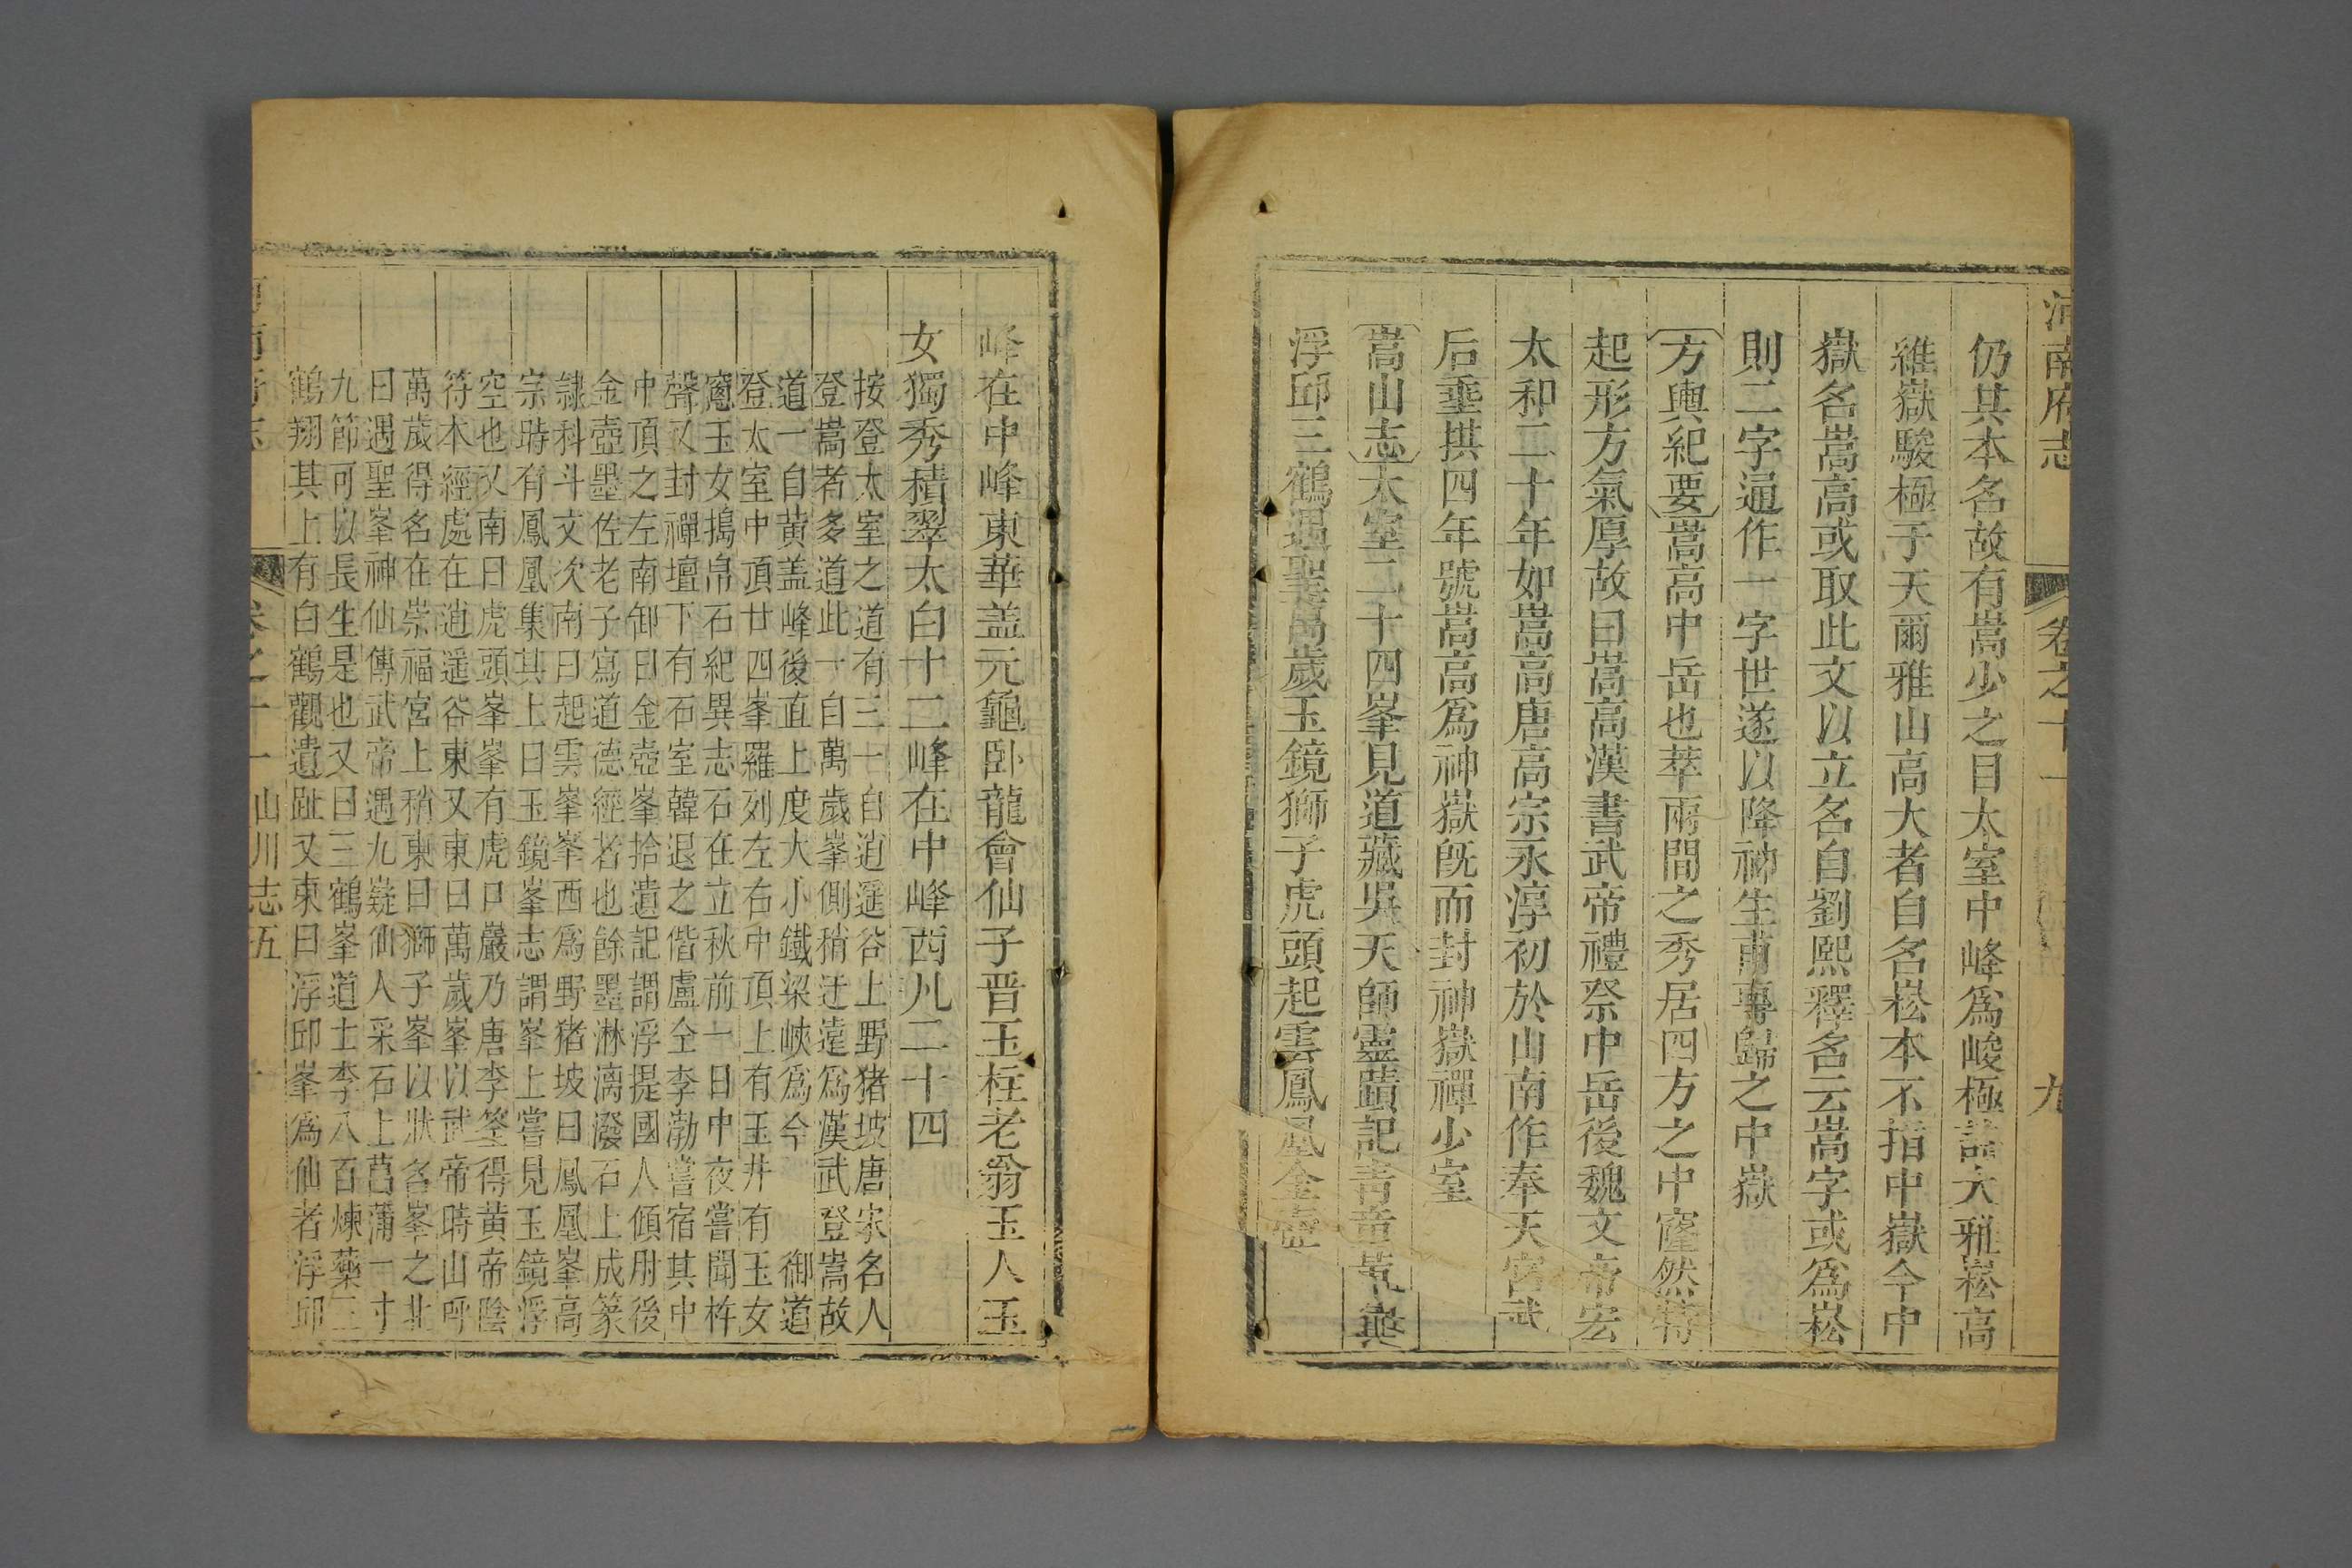 河南府志 卷之十一 九
仍其本名故有嵩少之目太室中峰爲峻極詩大雅崧高
維嶽駿極于天爾雅山高大者自名崧本不指中嶽今中
嶽名嵩高或取此文以立名自劉熙釋名云嵩字或爲崧
則二字通作一字世遂以降神生甫專歸之中嶽
方輿紀要嵩高中岳也萃兩間之秀居四方之中窿然特
起形方氣厚故曰嵩高漢書武帝禮祭中岳後魏文帝宏
太和二十年如嵩高唐高宗永淳初於山南作奉天宮武
后垂拱四年號嵩高爲神嶽旣而封神嶽禪少室
嵩山志太室二十四峯見道藏吳天師靈蹟記青童黃蓋
浮邱三鶴遇聖萬歲玉鏡獅子虎頭起雲鳳凰金壺
峰在中峰東華盖元龜卧龍會仙子晋玉柱老翁玉人玉
女獨秀積翠太白十二峰在中峰西凡二十四
按登太室之道有三一自逍遥谷上野猪坡唐宋名人
登嵩者多道此一自萬歲峯側稍迂遠爲漢武登嵩故
道一自黃盖峰後面上度大小鐵梁峽爲今 御道
登太室中頂廿四峯羅列左右中頂上有玉井有玉女
窻玉女搗帛石紀異志石在立秋前一日中夜嘗聞杵
聲又封禪壇下有石室韓退之偕盧仝李渤嘗宿其中
中頂之左南卸曰金壺峯拾遺記謂浮提國人傾肘後
金壺墨佐老子寫道德經者也餘墨淋漓潑石上成篆
隷科斗文次南曰起雲峯峯西爲野猪坡曰鳳凰峯高
宗時有鳳凰集其上曰玉鏡峯志謂峯上嘗見玉鏡浮
空也又南曰虎頭峯峯有虎口巖乃唐李筌得黃帝陰
符本經處在逍遥谷東又東曰萬歲峯以武帝時山呼
萬歲得名在崇福宮上稍東曰獅子峯以狀名峯之北
曰遇聖峯神仙傳武帝遇九嶷仙人采石上菖蒲一寸
九節可以長生是也又曰三鶴峯道士李八百煉藥三
鶴翔其上有白鶴觀遺趾又東曰浮邱峯爲仙者浮邱
卷之十一 山川志五